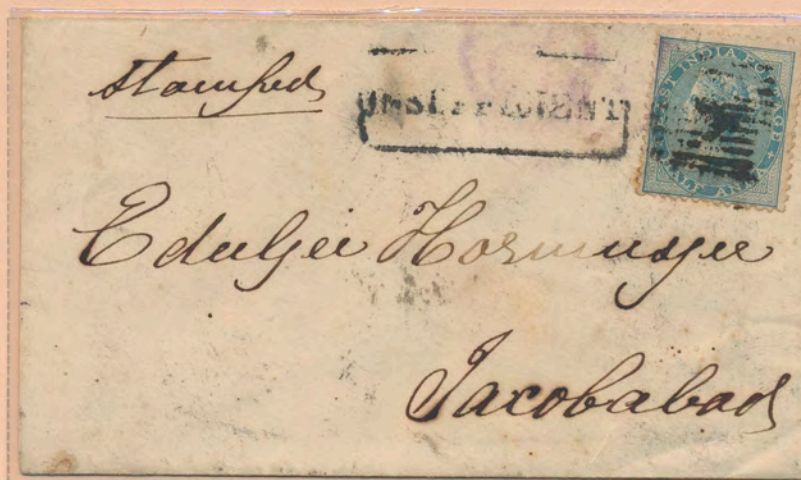 Stamped
EAST INDIA POSTAGE
HALF ANNA
Eduljee Hormusjee
Jacobabad